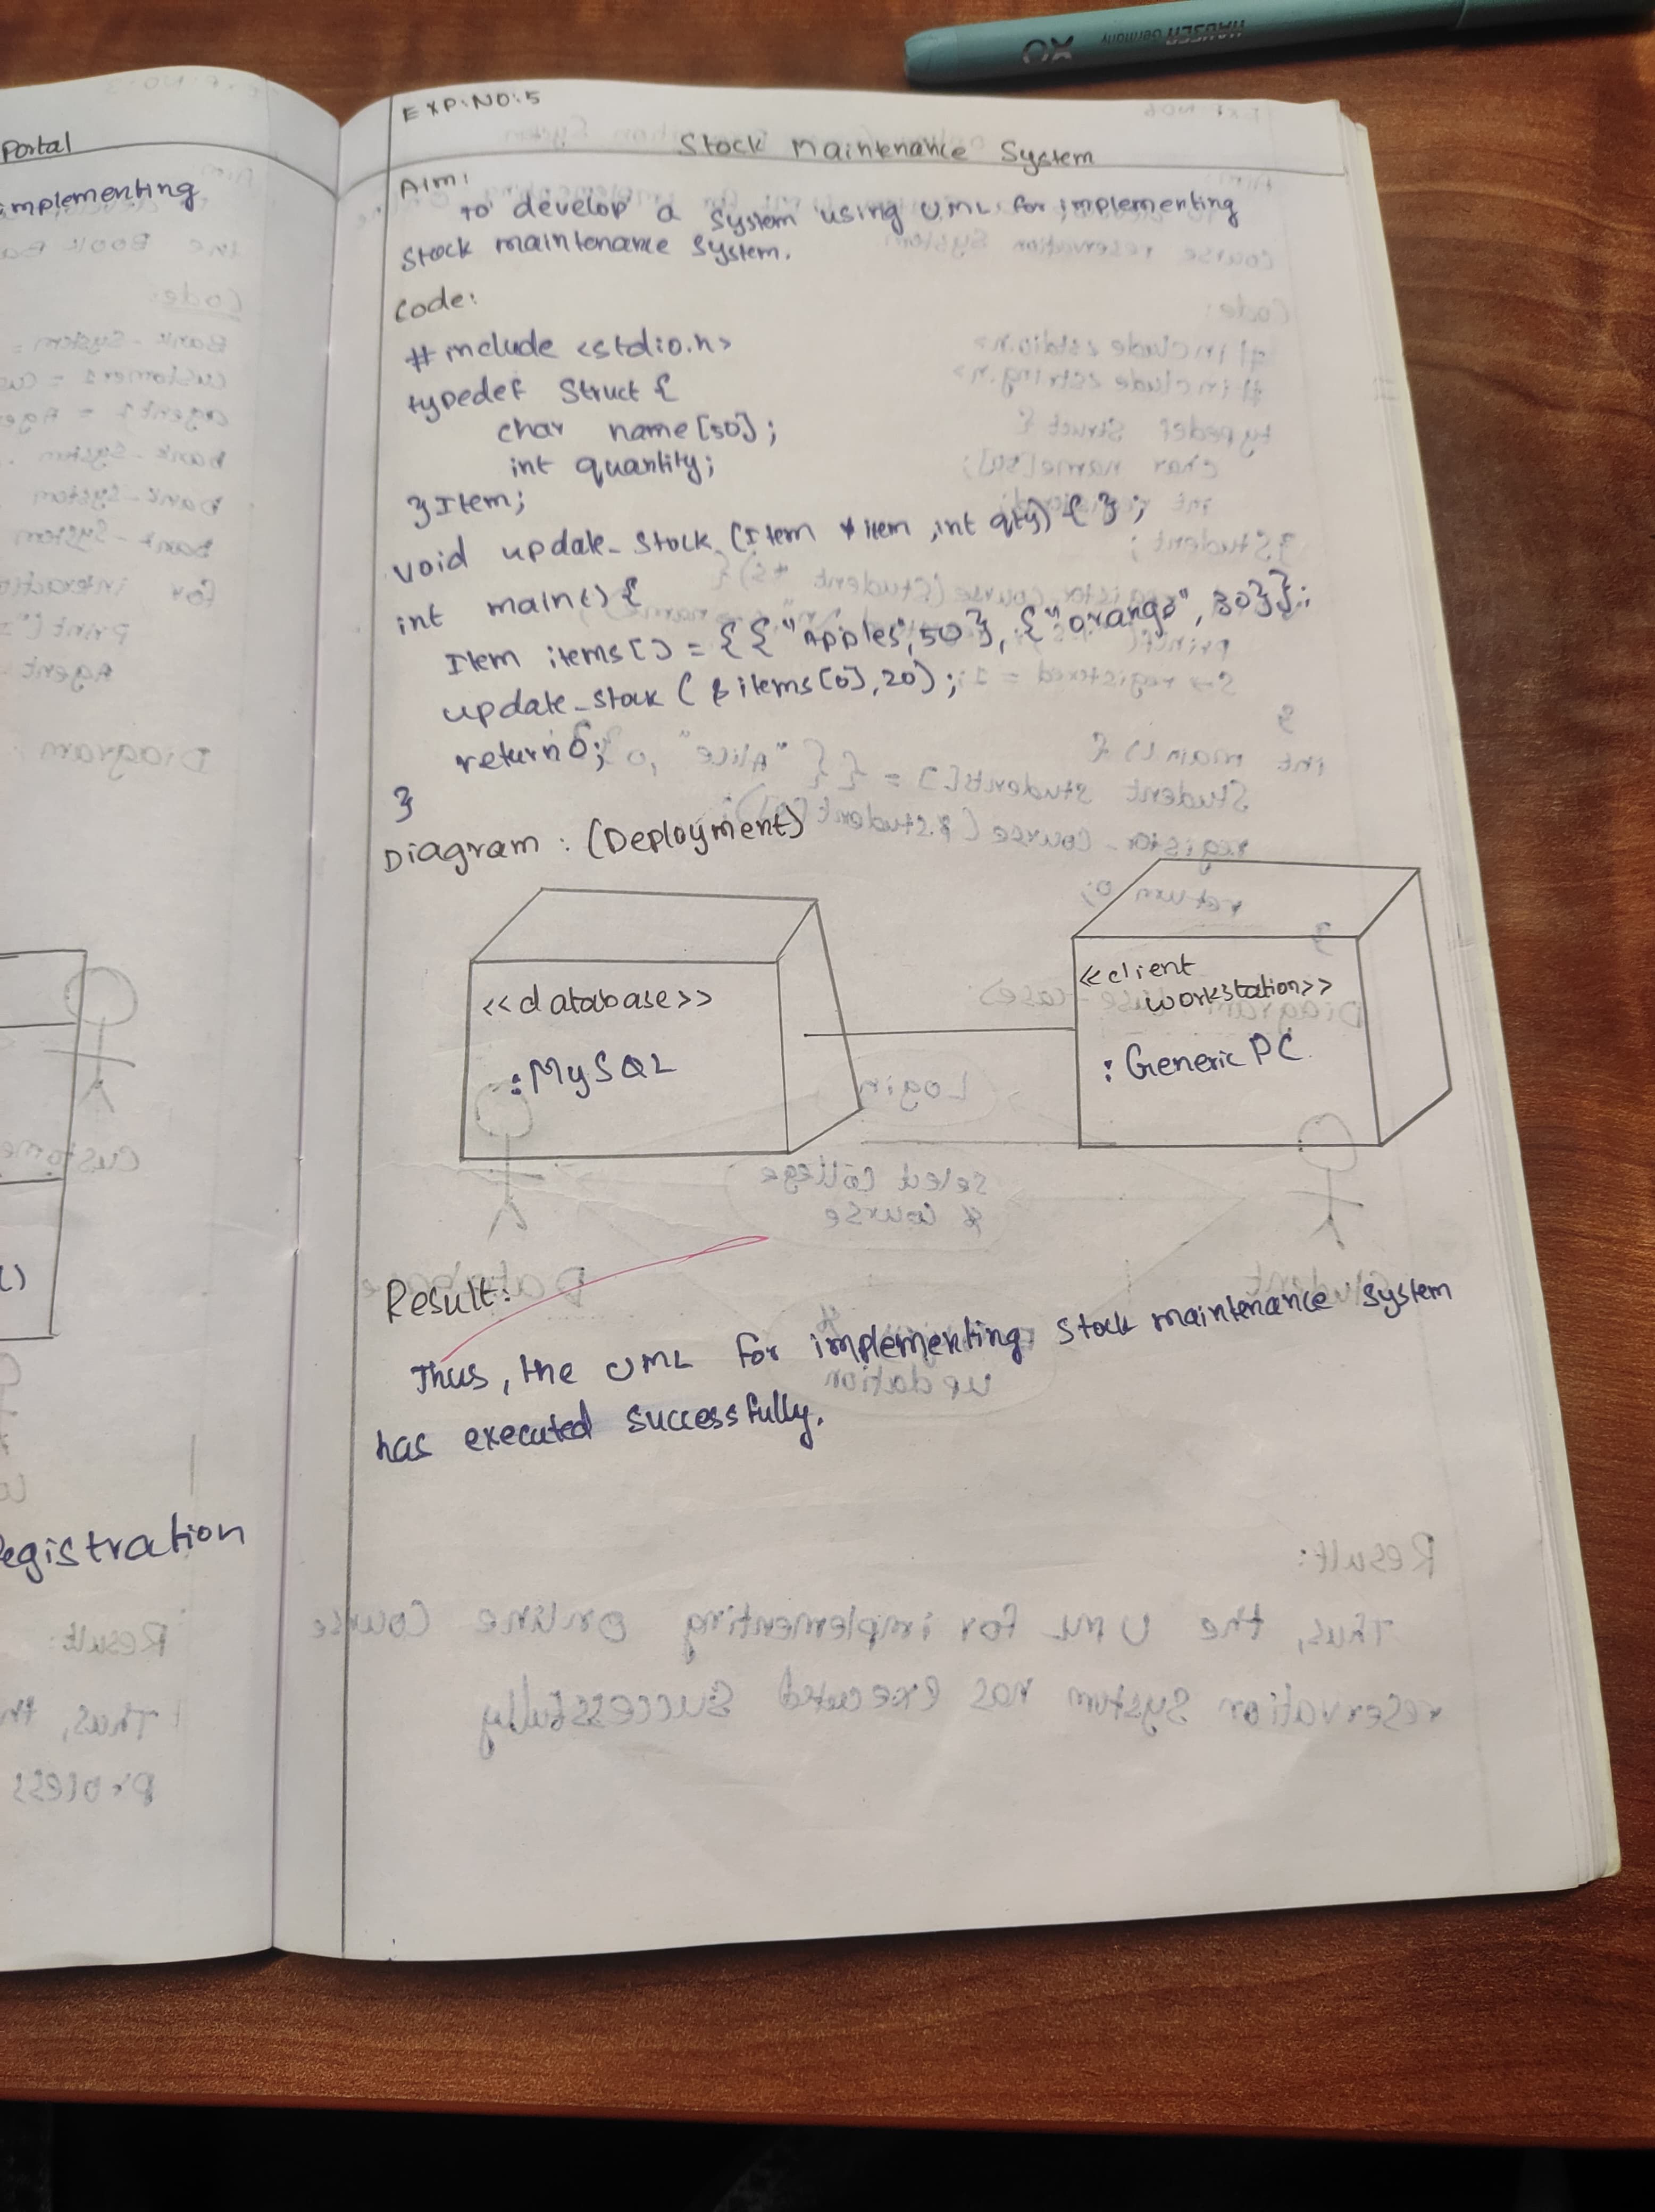 Portal
implementing
egistration
EXP:NO:5
Stock Maintenance System
Aim:
to develop a system using UML for implementing
stock maintenance system.
Code:
#include <stdio.h>
typedef struct {
char name[50];
int quantity;
}Item;
void update_stock (Item *item, int qty) { };
int main() {
Item items[] = {{"Apples",50}, {"orange", 30}};
update_stock (&items[0],20);
return 0;
}
Diagram : (Deployment)
<<database>>
:MySQL
<<client
workstation>>
: Generic PC
Result:
Thus, the UML for implementing stock maintenance system
has executed successfully.
XO HAUSER Germany